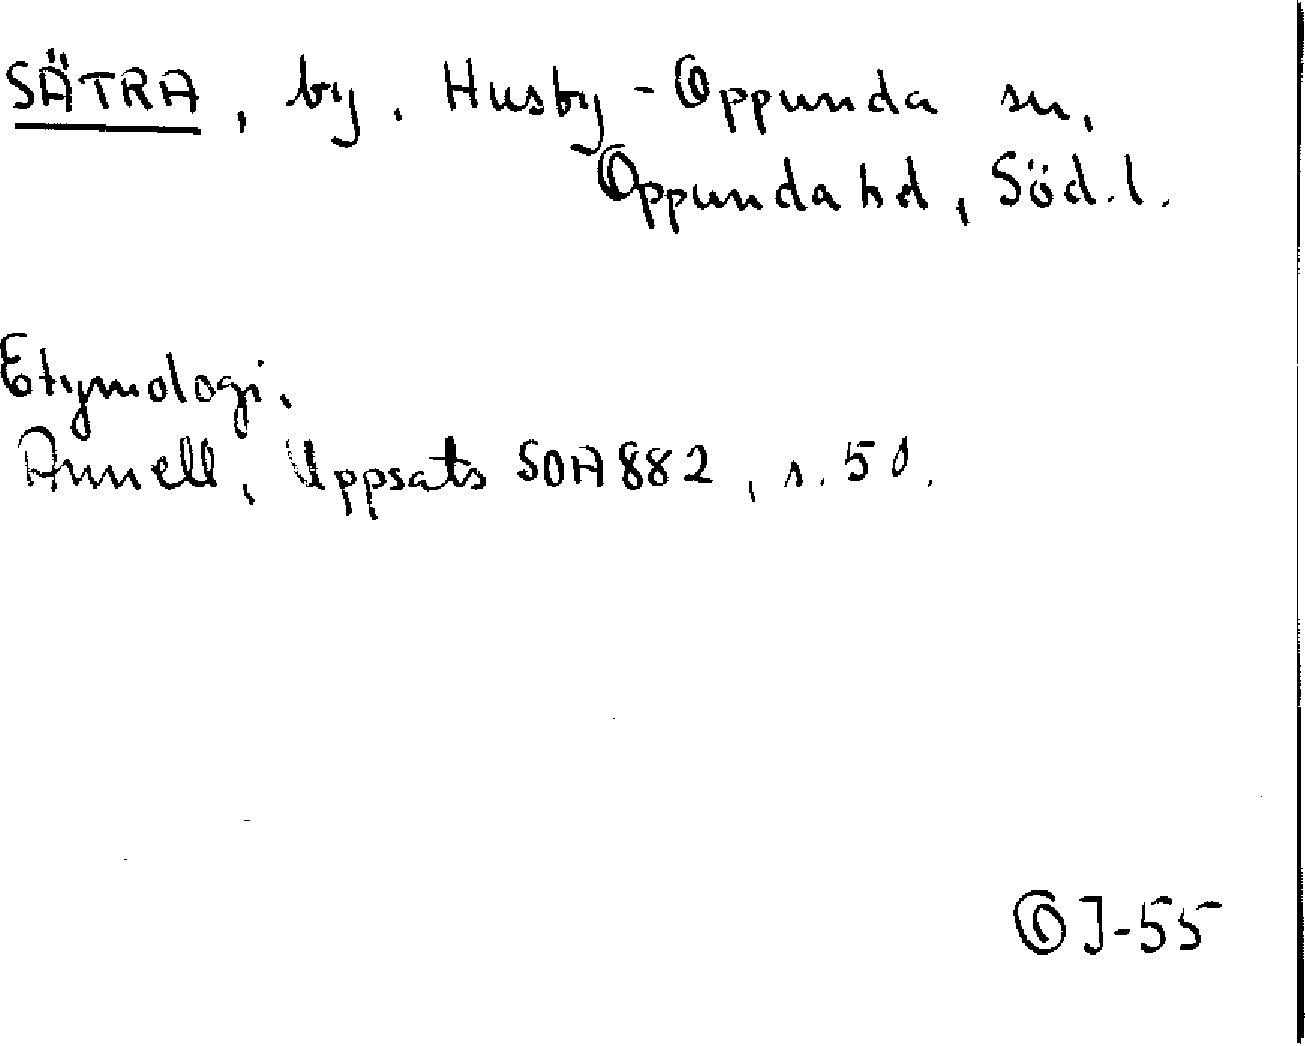 SÄTRA, by, Husby-Oppunda sn,
Oppunda hd, Söd.l.
Etymologi.
Annell, Uppsats SOA 882, s. 50.
OJ-55